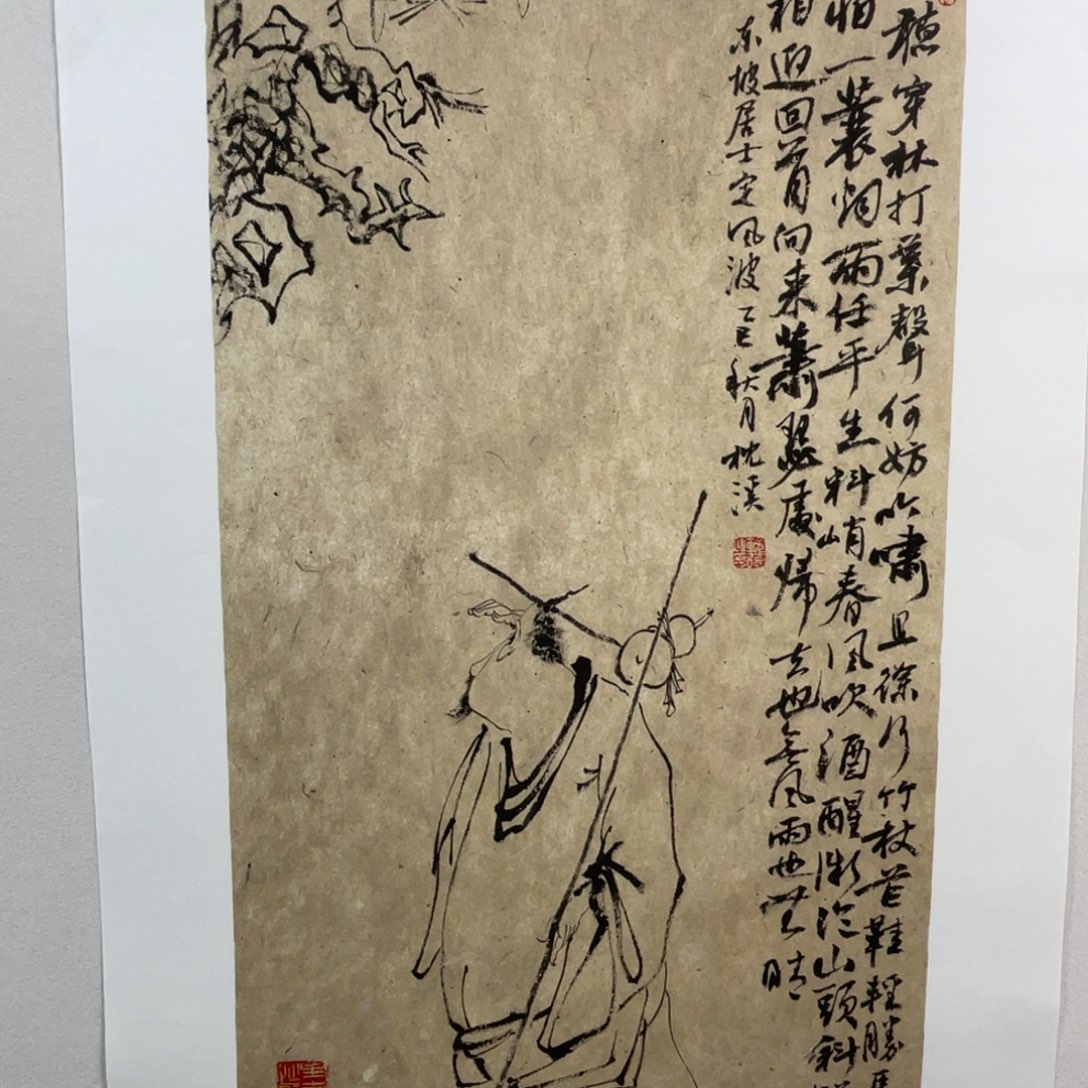 聽穿林打葉聲何妨吟嘯且徐行竹杖芒鞋輕勝
怕一蓑烟雨任平生料峭春风吹酒醒微冷山頭斜
相迎回首向来蕭瑟處歸去也無风雨也無晴
东坡居士定风波乙巳秋月枕溪